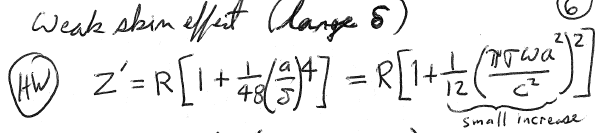 Weak skin effect (large δ) ⑥
HW Z' = R[1 + 1/48 (a/δ)^4] = R[1 + 1/12 (πσωa²/c²)²]
small increase